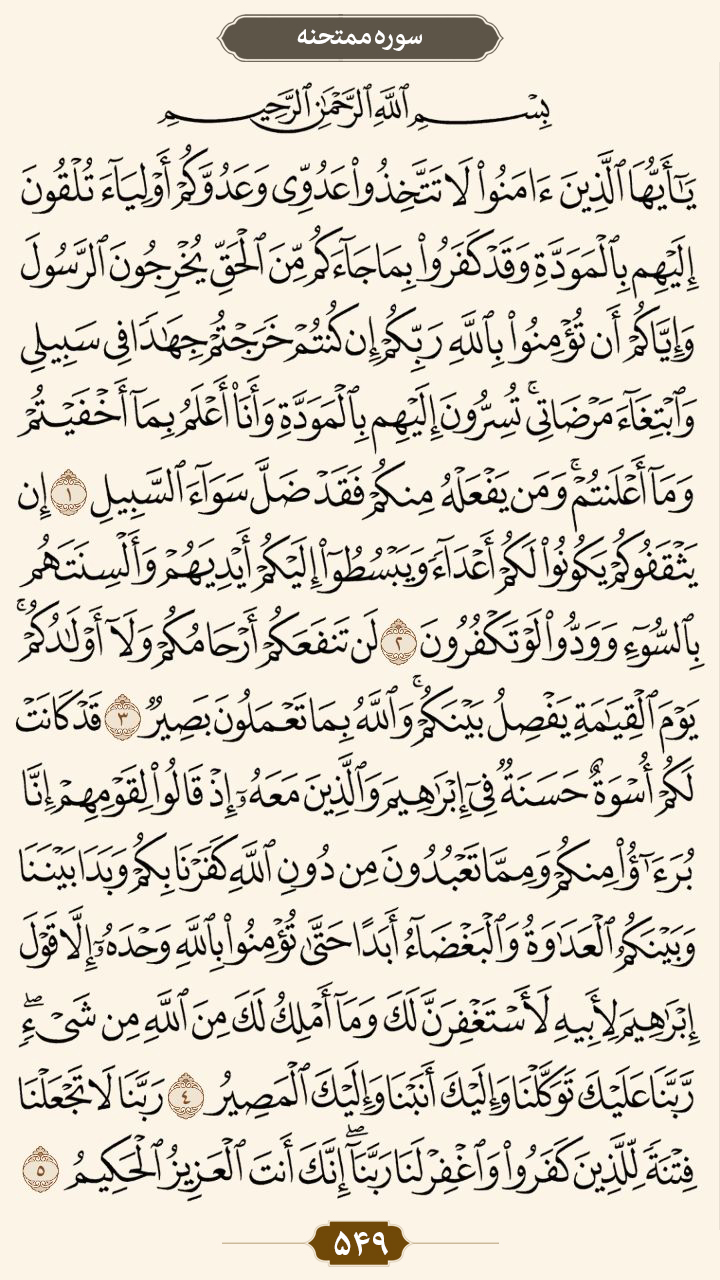 سوره ممتحنه
بِسْمِ ٱللَّهِ ٱلرَّحْمَٰنِ ٱلرَّحِيمِ
يَٰٓأَيُّهَا ٱلَّذِينَ ءَامَنُوا۟ لَا تَتَّخِذُوا۟ عَدُوِّى وَعَدُوَّكُمْ أَوْلِيَآءَ تُلْقُونَ
إِلَيْهِم بِٱلْمَوَدَّةِ وَقَدْ كَفَرُوا۟ بِمَا جَآءَكُم مِّنَ ٱلْحَقِّ يُخْرِجُونَ ٱلرَّسُولَ
وَإِيَّاكُمْ أَن تُؤْمِنُوا۟ بِٱللَّهِ رَبِّكُمْ إِن كُنتُمْ خَرَجْتُمْ جِهَٰدًا فِى سَبِيلِى
وَٱبْتِغَآءَ مَرْضَاتِى ۚ تُسِرُّونَ إِلَيْهِم بِٱلْمَوَدَّةِ وَأَنَا۠ أَعْلَمُ بِمَآ أَخْفَيْتُمْ
وَمَآ أَعْلَنتُمْ ۚ وَمَن يَفْعَلْهُ مِنكُمْ فَقَدْ ضَلَّ سَوَآءَ ٱلسَّبِيلِ ١ إِن
يَثْقَفُوكُمْ يَكُونُوا۟ لَكُمْ أَعْدَآءً وَيَبْسُطُوٓا۟ إِلَيْكُمْ أَيْدِيَهُمْ وَأَلْسِنَتَهُم
بِٱلسُّوٓءِ وَوَدُّوا۟ لَوْ تَكْفُرُونَ ٢ لَن تَنفَعَكُمْ أَرْحَامُكُمْ وَلَآ أَوْلَٰدُكُمْ ۚ
يَوْمَ ٱلْقِيَٰمَةِ يَفْصِلُ بَيْنَكُمْ ۚ وَٱللَّهُ بِمَا تَعْمَلُونَ بَصِيرٌ ٣ قَدْ كَانَتْ
لَكُمْ أُسْوَةٌ حَسَنَةٌ فِىٓ إِبْرَٰهِيمَ وَٱلَّذِينَ مَعَهُۥٓ إِذْ قَالُوا۟ لِقَوْمِهِمْ إِنَّا
بُرَءَٰٓؤُا۟ مِنكُمْ وَمِمَّا تَعْبُدُونَ مِن دُونِ ٱللَّهِ كَفَرْنَا بِكُمْ وَبَدَا بَيْنَنَا
وَبَيْنَكُمُ ٱلْعَدَٰوَةُ وَٱلْبَغْضَآءُ أَبَدًا حَتَّىٰ تُؤْمِنُوا۟ بِٱللَّهِ وَحْدَهُۥٓ إِلَّا قَوْلَ
إِبْرَٰهِيمَ لِأَبِيهِ لَأَسْتَغْفِرَنَّ لَكَ وَمَآ أَمْلِكُ لَكَ مِنَ ٱللَّهِ مِن شَىْءٍ ۖ
رَّبَّنَا عَلَيْكَ تَوَكَّلْنَا وَإِلَيْكَ أَنَبْنَا وَإِلَيْكَ ٱلْمَصِيرُ ٤ رَبَّنَا لَا تَجْعَلْنَا
فِتْنَةً لِّلَّذِينَ كَفَرُوا۟ وَٱغْفِرْ لَنَا رَبَّنَآ ۖ إِنَّكَ أَنتَ ٱلْعَزِيزُ ٱلْحَكِيمُ ٥
۵۴۹